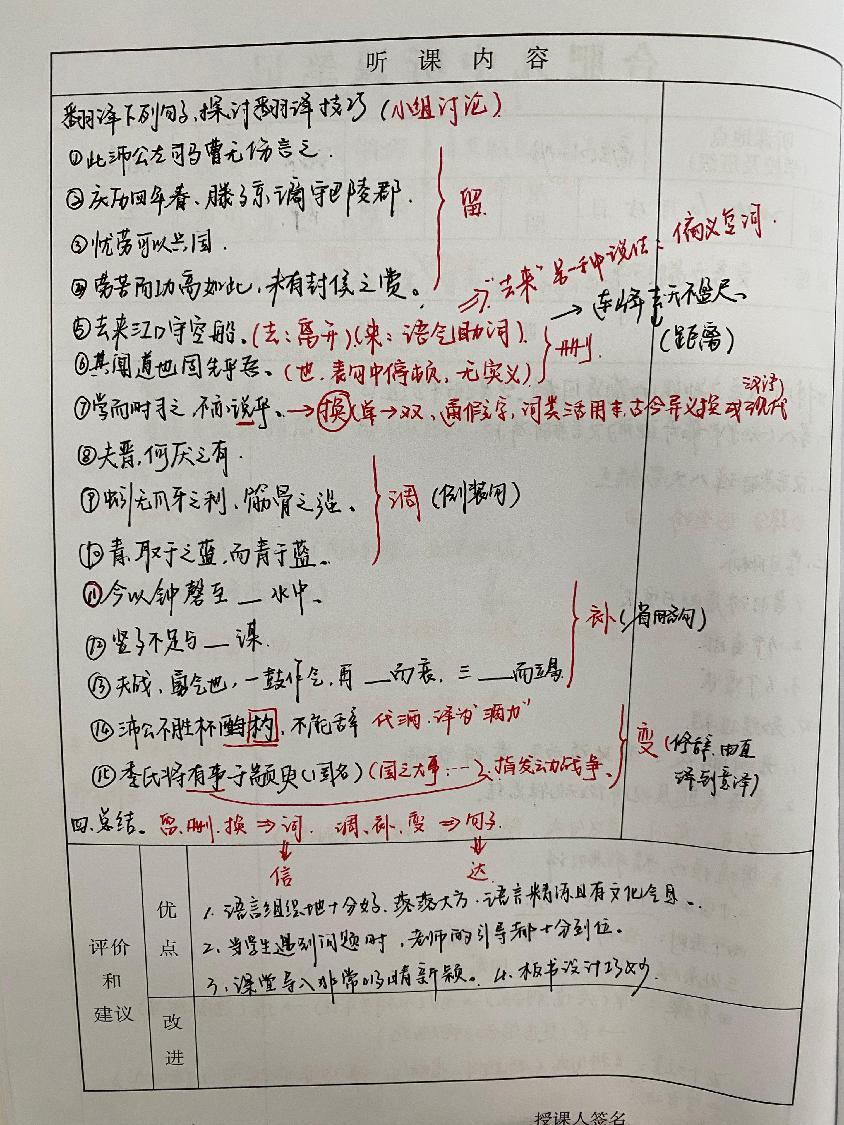 听课内容
翻译下列句子,探讨翻译技巧(小组讨论)
①此沛公左司马曹无伤言之.
②庆历四年春、滕子京谪守巴陵郡.
③忧劳可以兴国.
④劳苦而功高如此,未有封侯之赏。
留
⇒"去来"另一种说法:偏义复词.
⑤去来江口守空船。(去:离开)(来:语气助词).
→连峰去天不盈尺.
(距离)
⑥其闻道也固先乎吾。(也.表句中停顿,无实义)
删.
⑦学而时习之 不亦说乎。→换(单→双、通假字,词类活用,古今异义换或现代
汉语)
⑧夫晋,何厌之有.
⑨蚓无爪牙之利、筋骨之强.
⑩青,取于之蓝,而青于蓝.
调(倒装句)
⑪今以钟磬至__水中、
⑫竖子不足与__谋.
⑬夫战,勇气也,一鼓作气,再__而衰,三__而竭
补(省略句)
⑭沛公不胜杯酌杓,不能辞 代酒.译为"酒力"
⑮季氏将有事于颛臾(国名)(国之大事…)、指发动战争、
变(修辞,由直
译到意译)
四.总结。留、删、换⇒词. 调、补、变⇒句子
信 达.
评价和建议
优点
1.语言组织地十分好.落落大方.语言精炼且有文化气息.
2.当学生遇到问题时,老师的引导都十分到位。
3.课堂导入非常的精新颖。4.板书设计巧妙.
改进
授课人签名